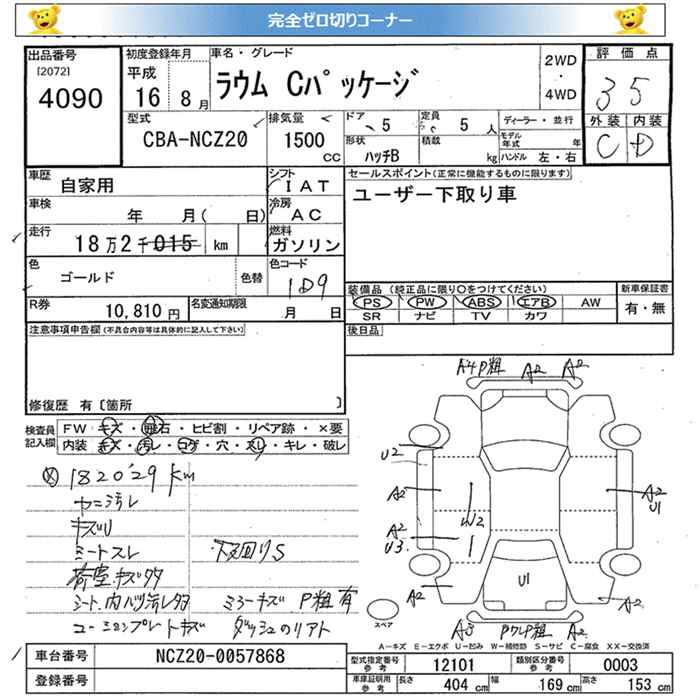 完全ゼロ切りコーナー
出品番号
[2072]
4090
初度登録年月
平成
16 8月
車名・グレード
ラウム Cパッケージ
2WD
・
4WD
評価点
3 5
外装 内装
C D
型式
CBA-NCZ20
排気量
1500
CC
ドア 5
形状
ハッチB
定員 5 人
積載 kg
ディーラー・並行
モデル年式 年
ハンドル 左・右
車歴
自家用
シフト
IAT
車検
年 月( 日)
冷房
AC
走行
18万2千015 km
燃料
ガソリン
色
ゴールド
色替
色コード
1D9
R券
10,810円
名変通知期限
月 日
セールスポイント(正常に機能するものに限ります)
ユーザー下取り車
装備品(純正品に限り○をつけてください)
PS PW ABS エアB AW
SR ナビ TV カワ
新車保証書
有・無
後日品
注意事項申告欄(不具合内容等は具体的に記入して下さい)
修復歴 有〔箇所 〕
検査員
記入欄
FW キズ・飛石・ヒビ割・リペア跡・×要
内装 キズ・汚レ・コゲ・穴・スレ・キレ・破レ
182029km
ヤニ汚レ
キズU
シートスレ
下廻りS
荷室キズ多
シート、内ハリ汚レ多
ミラーキズ P粗有
コーションプレートキズ
ダッシュのリアト
A4P粗 A2 A2
U2
A2
W2
A2
U1
A2
U3
U1
A2
A2
A3
A2
スペア
A-キズ E-エクボ U-凹み W-補修跡 S-サビ C-腐食 XX-交換済
車台番号
NCZ20-0057868
登録番号
型式指定番号
参考
12101
類別区分番号
参考
0003
車庫証明用
参考
長さ 404 cm 幅 169 cm 高さ 153 cm